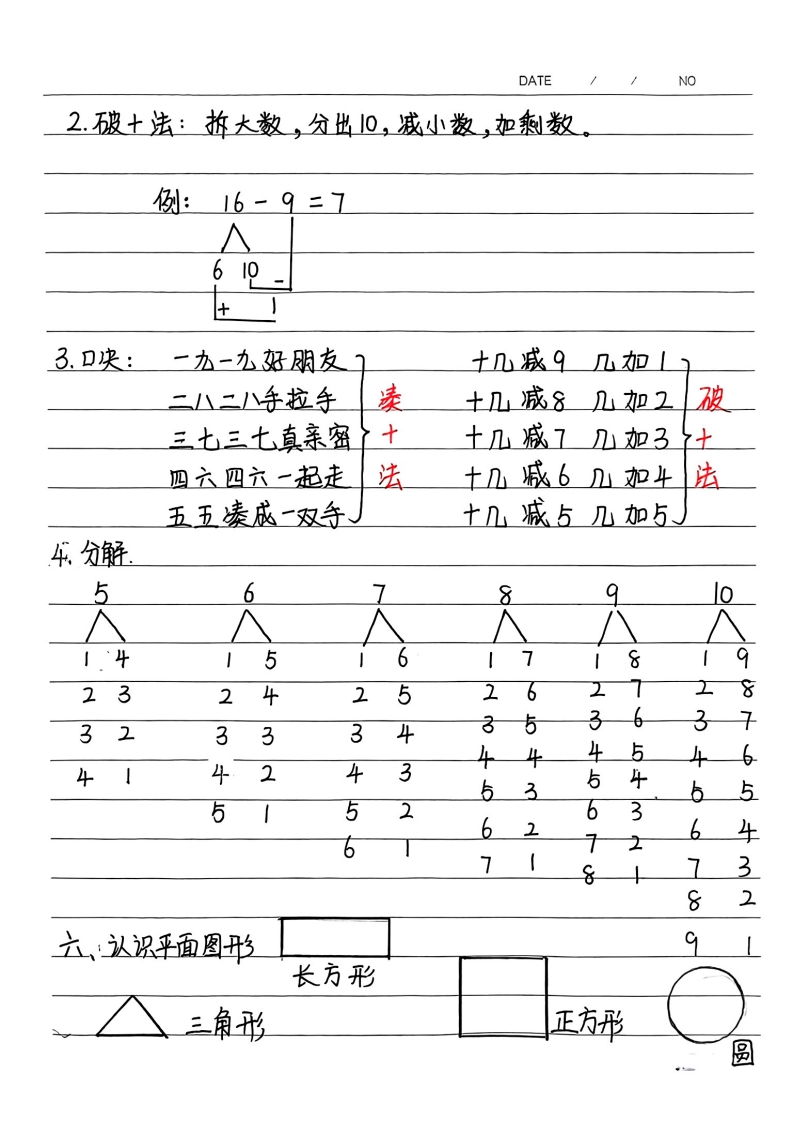 DATE / / NO
2.破十法：拆大数,分出10,减小数,加剩数。
例： 16-9=7
6 10 -
+ 1
3.口决： 一九一九好朋友 十几减9 几加1
二八二八手拉手 凑 十几减8 几加2 破
三七三七真亲密 十 十几减7 几加3 十
四六四六一起走 法 十几减6 几加4 法
五五凑成一双手 十几减5 几加5
4.分解.
5 6 7 8 9 10
1 4 1 5 1 6 1 7 1 8 1 9
2 3 2 4 2 5 2 6 2 7 2 8
3 2 3 3 3 4 3 5 3 6 3 7
4 1 4 2 4 3 4 4 4 5 4 6
5 1 5 2 5 3 5 4 5 5
6 1 6 2 6 3 6 4
7 1 7 2 7 3
8 1 8 2
9 1
六、认识平面图形
长方形
三角形 正方形
圆